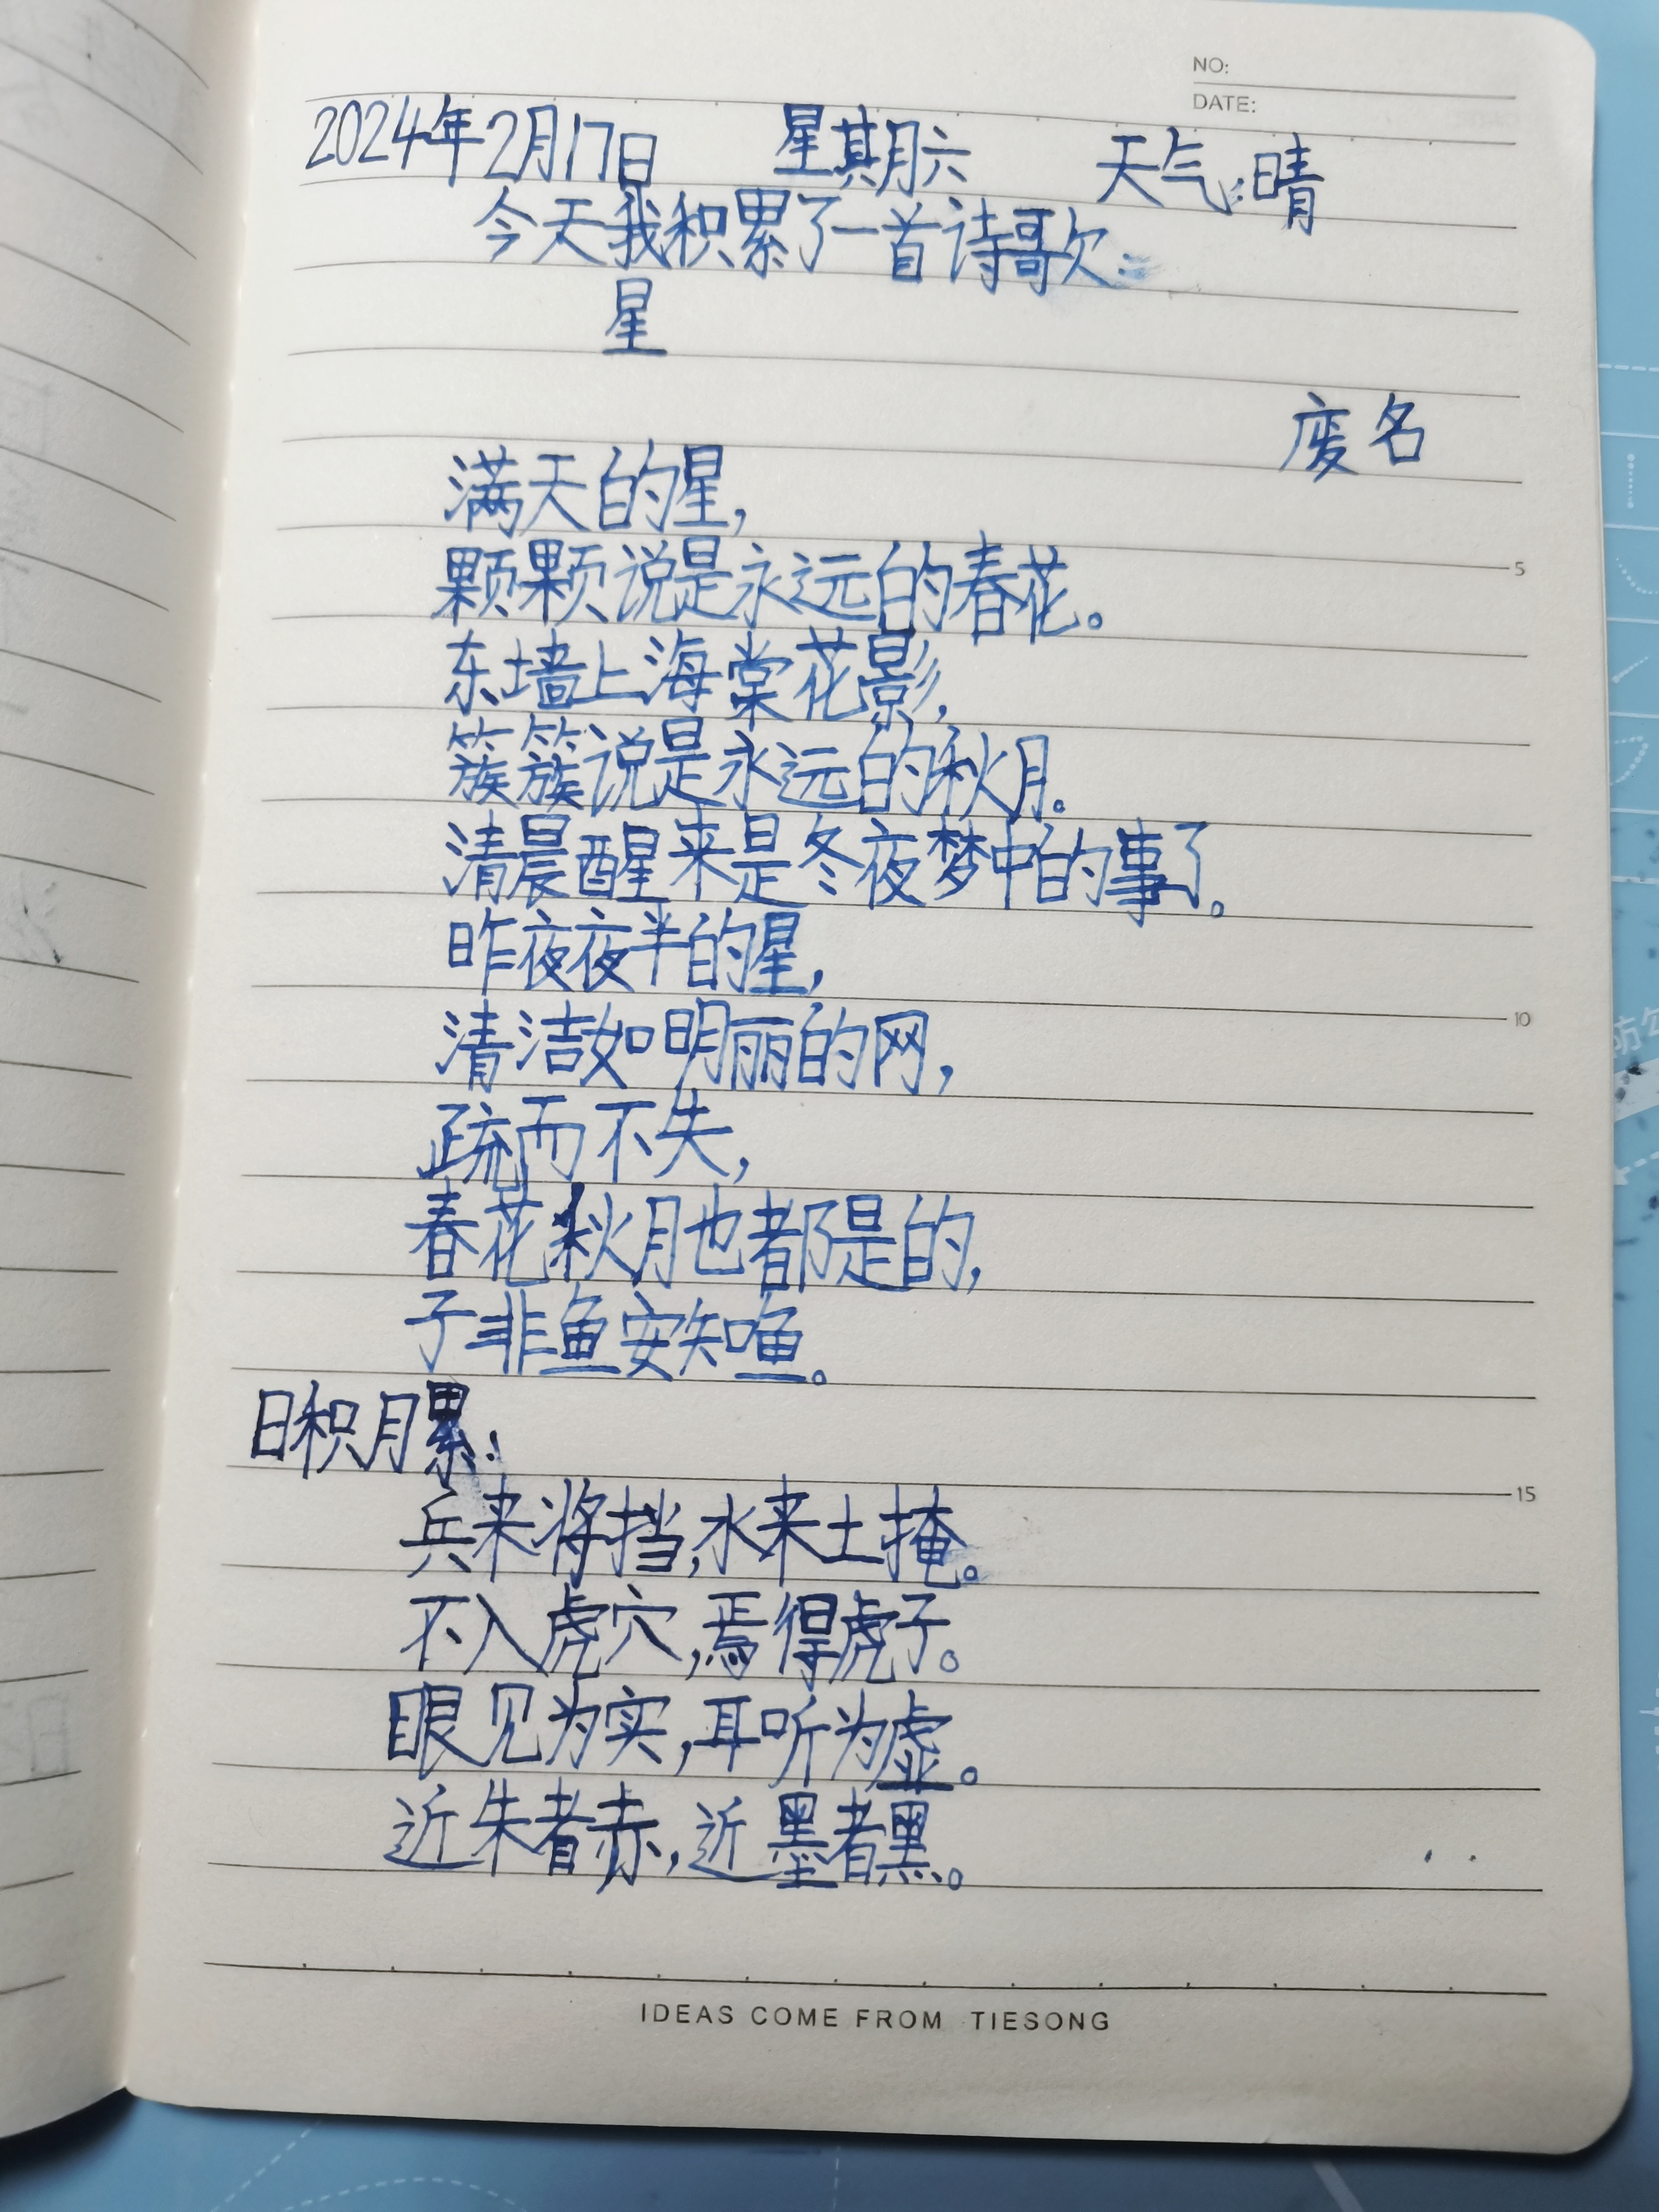 NO:
DATE:
2024年2月17日 星期六 天气:晴
今天我积累了一首诗歌:
星
废名
满天的星,
颗颗说是永远的春花。
东墙上海棠花影,
簇簇说是永远的秋月。
清晨醒来是冬夜梦中的事了。
昨夜夜半的星,
清洁如明丽的网,
疏而不失,
春花秋月也都是的,
子非鱼安知鱼。
日积月累:
兵来将挡,水来土掩。
不入虎穴,焉得虎子。
眼见为实,耳听为虚。
近朱者赤,近墨者黑。
5
10
15
IDEAS COME FROM TIESONG